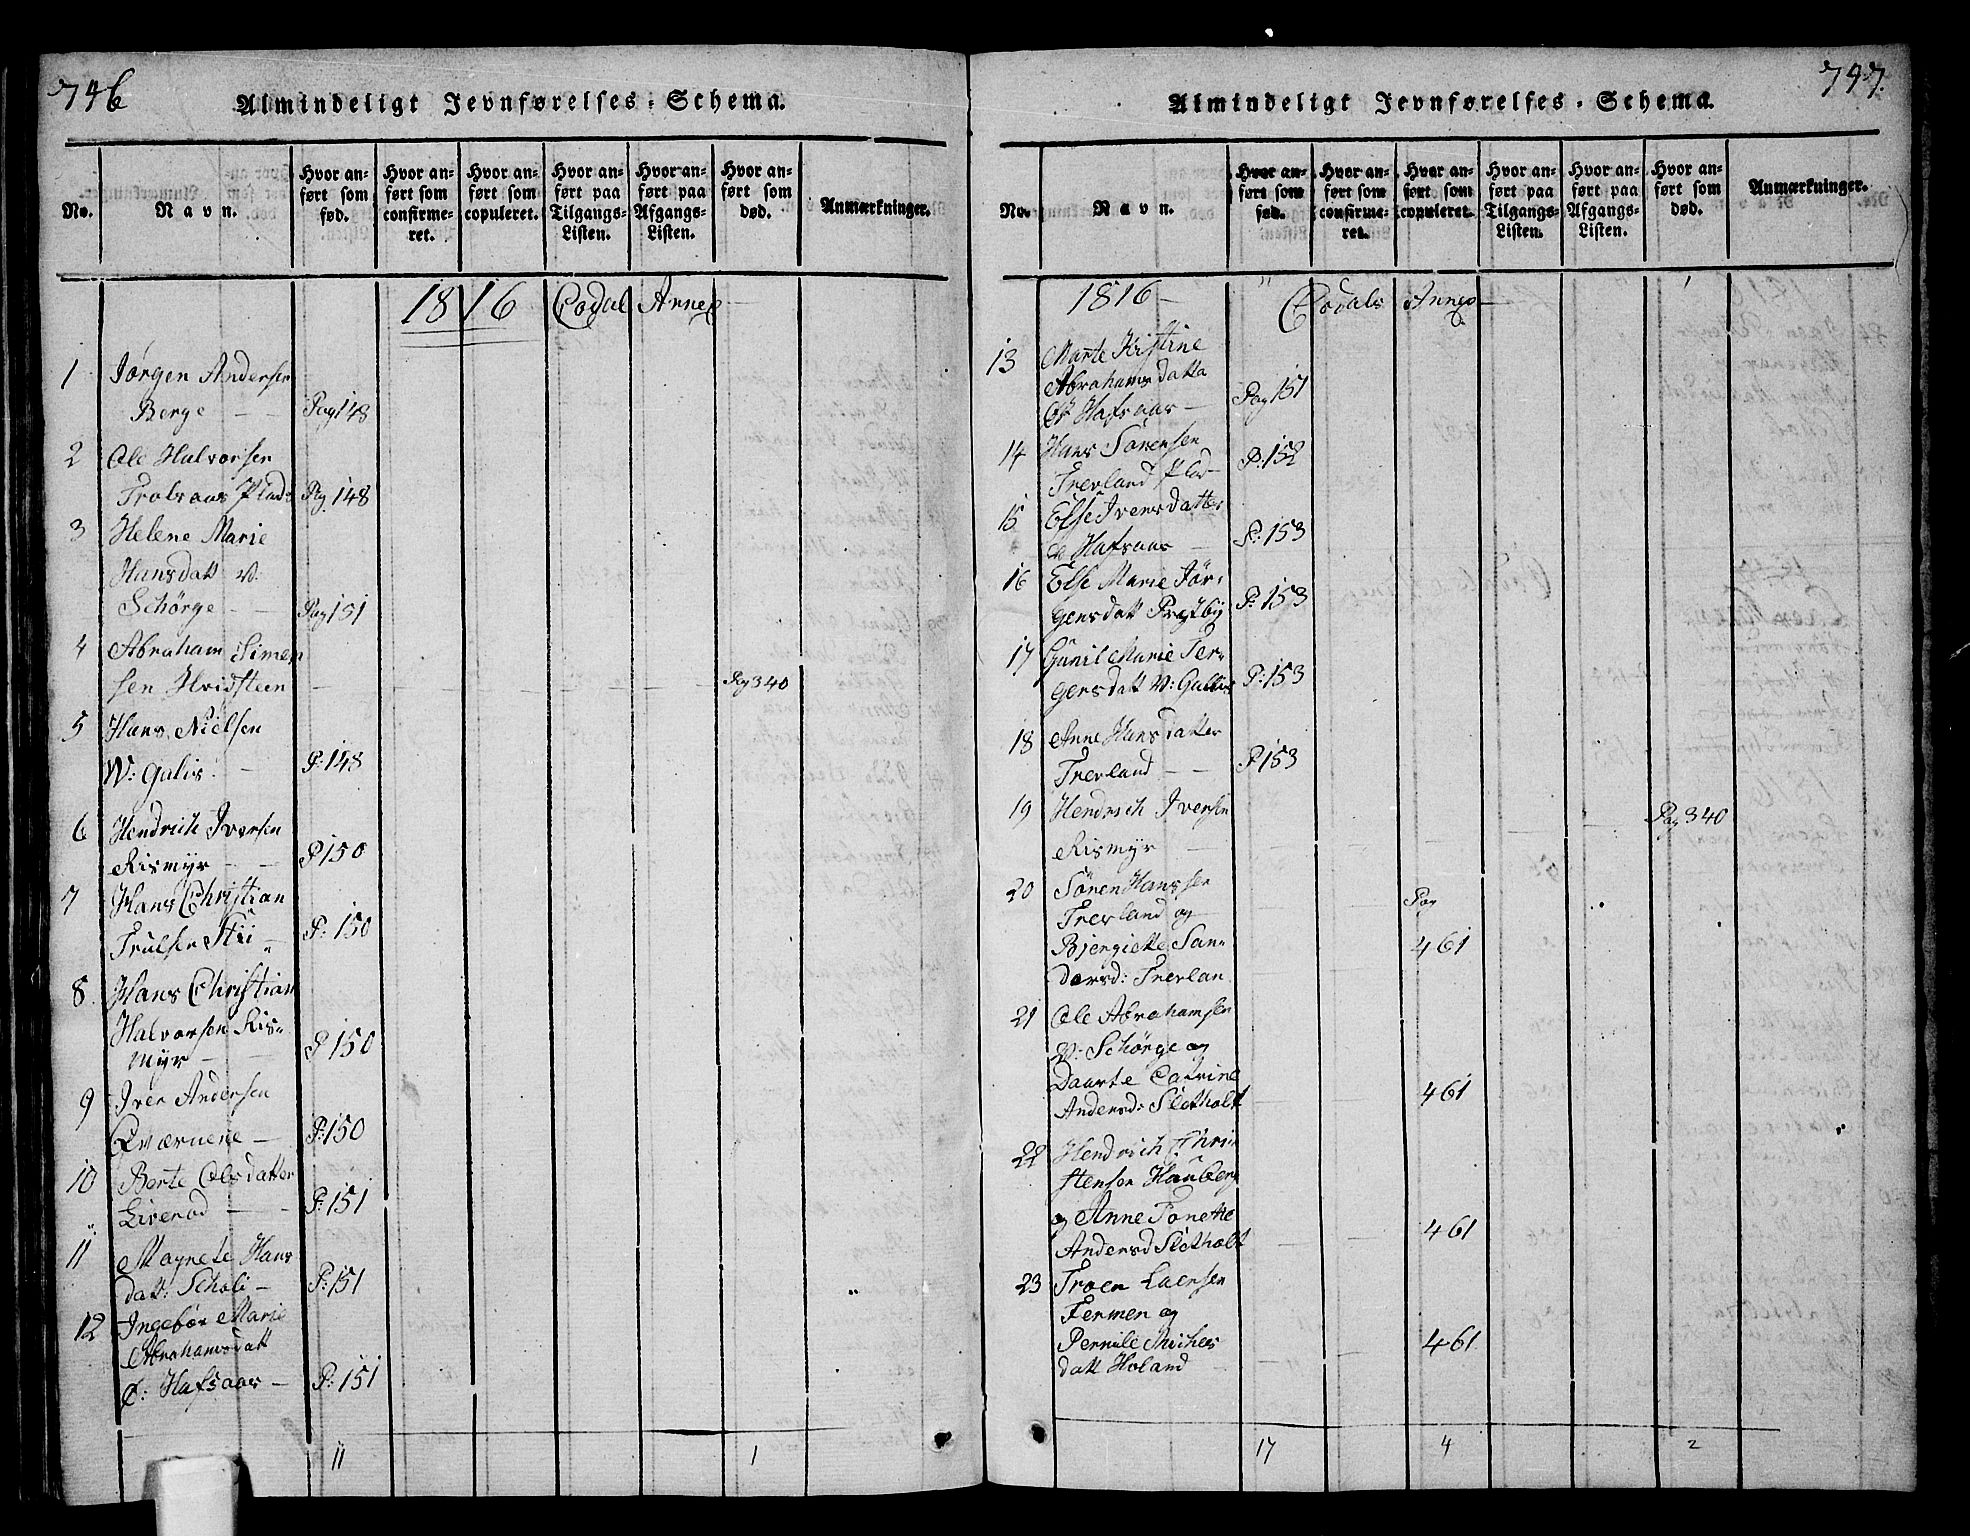 746
Almindeligt Jevnførelses-Schema.
No.
Navn.
Hvor anført som fød.
Hvor anført som confirmeret.
Hvor anført som copuleret.
Hvor anført paa Tilgangs-Listen.
Hvor anført paa Afgangs-Listen.
Hvor anført som død.
Anmærkninger.
1816 Eodal Annex
1 Jørgen Andersen
Berge Pag 148
2 Ole Halvorsen
Trolsaas Plads Pag 148
3 Helene Marie
Hansdatt V.
Schörge Pag 151
4 Abraham Simen
sen Hvidsteen Pag 340
5 Hans Nielsen
W: Galis P: 148
6 Hendrich Iversen
Rismyr P 150
7 Hans Christian
Trulsen Stü P: 150
8 Hans Christian
Halvorsen Ris-
myr P 150
9 Iver Andersen
Qværnene P: 150
10 Berte Olsdatter
Liverød P: 151
11 Magnete Hans
datt: Scholi P: 151
12 Ingebør Marie
Abrahamsdatt
Ø: Hafsaas P: 151
11 1
747.
Almindeligt Jevnførelses-Schema.
No.
Navn.
Hvor anført som fød.
Hvor anført som confirmeret.
Hvor anført som copuleret.
Hvor anført paa Tilgangs-Listen.
Hvor anført paa Afgangs-Listen.
Hvor anført som død.
Anmærkninger.
1816 Eodals Annex
13 Marte Kistine
Abrahamsdatta
Ø Hafsaas Pag 151
14 Hans Sörensen
Trevland Plad P: 152
15 Else Iversdatter
Ø Hafsaas P: 153
16 Else Marie Jör-
gensdatt Prestby P: 153
17 Gunil Marie Ter-
gensdatt V: Gallis P: 153
18 Anne Hansdatter
Trevland P 153
19 Hendrich Iversen
Rismyr Pag 340
20 Sören Hanssen
Trevland og Pag
Bjergiette San- 461
dersd: Trevlan
21 Ole Abrahamsen
V: Schörge og
Daarte Catrine
Andersd: Sletholt 461
22 Hendrich Chri
stensen Hauberg
og Anne Tonette
Andersd Sletholt 461
23 Troen Laersen
Fermen og
Pernile Michels 461
datt Holand
17 4 2